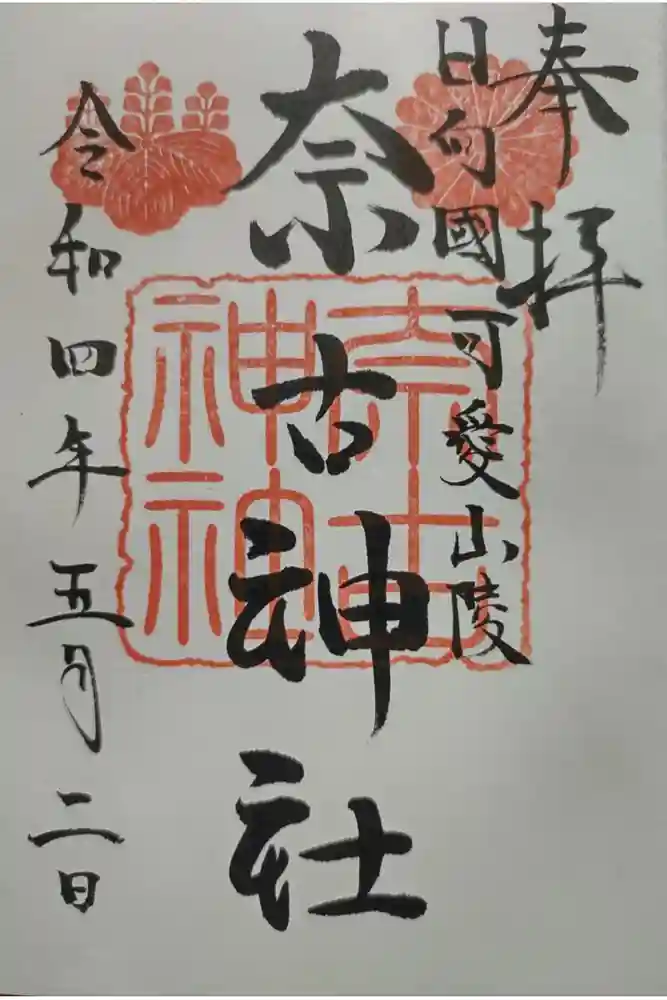 奉拝
日向國可愛山陵
奈古神社
奈古
神社
令和四年五月二日